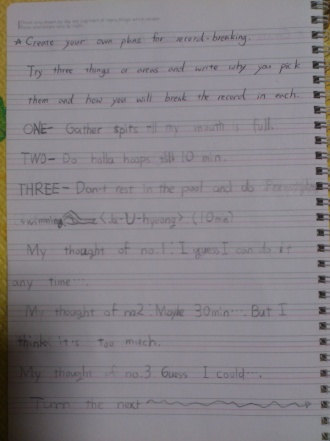 * Create your own plans for record-breaking.
Try three things or areas and write why you pick
them and how you will break the record in each.
ONE- Gather spits till my mouth is full.
TWO- Do holla hoops still 10 min.
THREE- Don't rest in the pool and do
swimming <Ja-U-hyung> (10m)
My thought of no.1: I guess I can do it
any time...
My thought of no2: Maybe 30min... But I
think it's too much.
My thought of no.3 Guess I could...
Turn the next